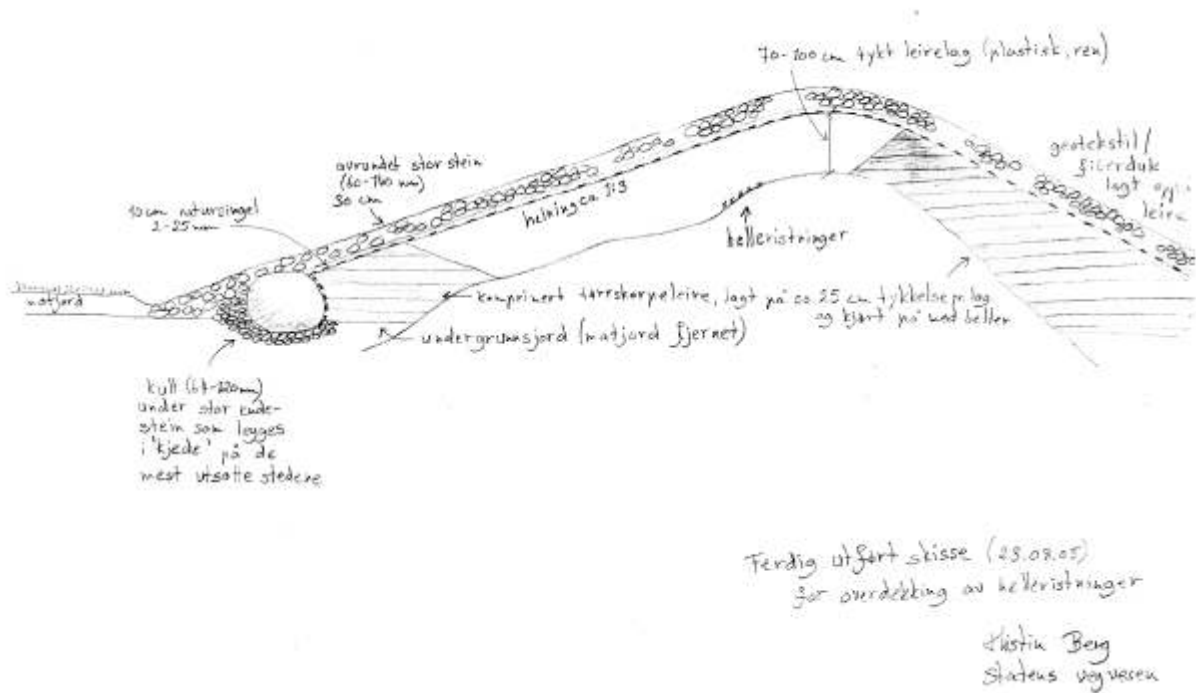 70-100 cm tykt leirelag (plastisk, ren)
geotekstil/
fiberduk
lagt oppi
leira
avrundet stor stein
(60-140 mm)
30 cm
10 cm natursingel
2-25 mm
helning ca 1:3
helleristninger
matjord
komprimert tørrskorpeleire, lagt på ca 25 cm tykkelse pr. lag
og kjørt på med
undergrunnsjord (matjord fjernet)
kult
under stor ende-
stein som legges
i 'kjede' på de
mest utsatte stedene
Ferdig utført skisse
for overdekking av helleristninger
Berg
Statens vegvesen